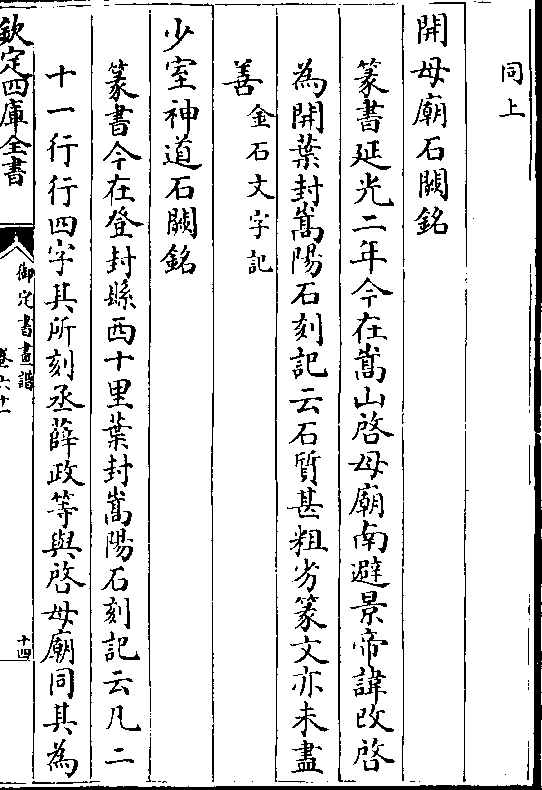 同上
開母廟石闕銘
篆書延光二年今在嵩山啓母廟南避景帝諱改啓
為開葉封嵩陽石刻記云石質甚粗劣篆文亦未盡
善金石文字記
少室神道石闕銘
篆書今在登封縣西十里葉封嵩陽石刻記云凡二
十一行行四字其所刻丞薛政等與啓母廟同其為
欽定四庫全書
御定書畫譜
卷六十一
十四